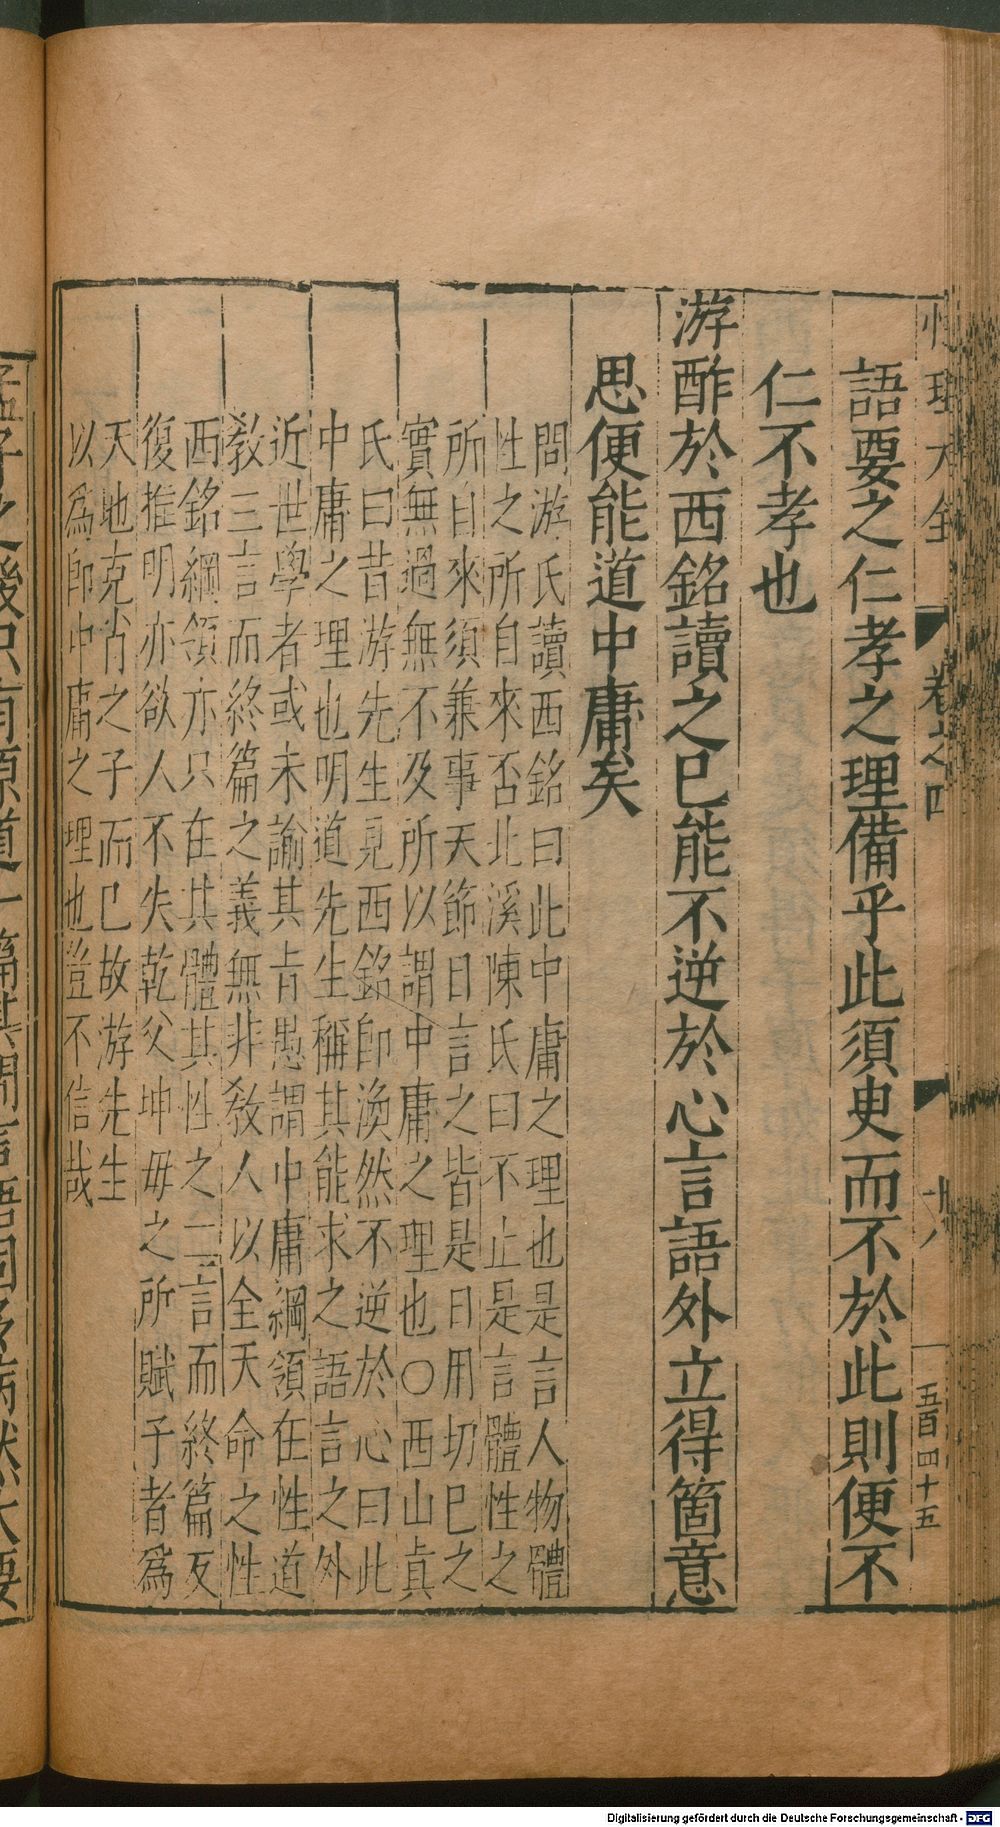 性理大全 卷之四 五百四十五
語要之仁孝之理備乎此須臾而不於此則便不
仁不孝也
游酢於西銘讀之已能不逆於心言語外立得箇意
思便能道中庸矣
問游氏讀西銘曰此中庸之理也是言人物體
性之所自來否北溪陳氏曰不止是言體性之
所自來須兼事天節目言之皆是日用切己之
實無過無不及所以謂中庸之理也○西山眞
氏曰昔游先生見西銘卽渙然不逆於心曰此
中庸之理也明道先生稱其能求之語言之外
近世學者或未諭其旨愚謂中庸綱領在性道
敎三言而終篇之義無非敎人以全天命之性
西銘綱領亦只在其體其性之二言而終篇反
復推明亦欲人不失乾父坤毋之所賦予者爲
天地克肖之子而已故游先生
以爲卽中庸之理也豈不信哉
孟子之後只有原道一篇其間言語固多病然大要
Digitalisierung gefördert durch die Deutsche Forschungsgemeinschaft - DFG